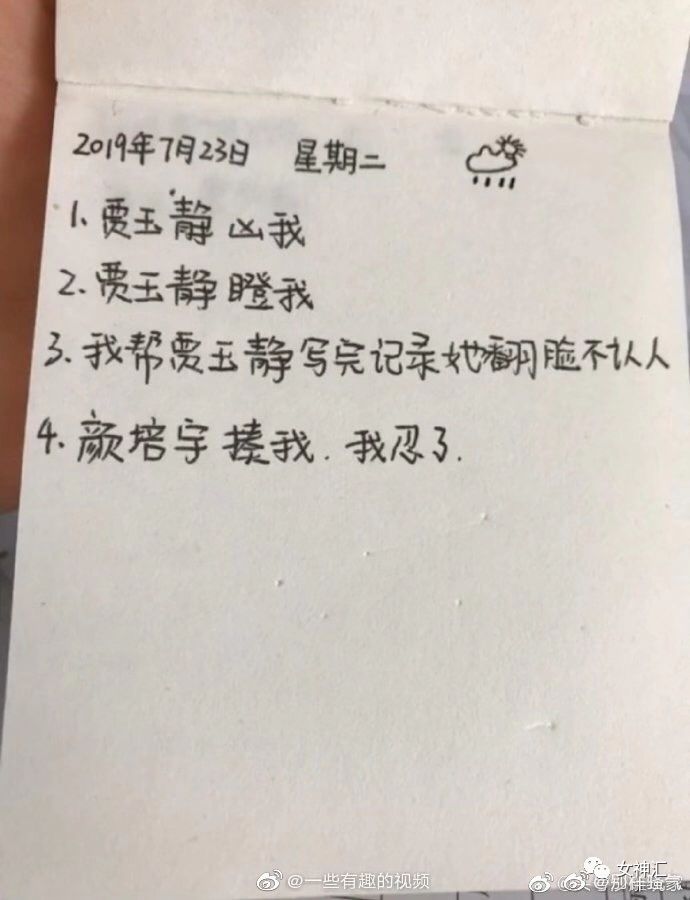 2019年7月23日 星期二
1. 贾玉静凶我
2. 贾玉静瞪我
3. 我帮贾玉静写完记录她翻脸不认人
4. 颜培宇揍我. 我忍了.
女神汇
@一些有趣的视频